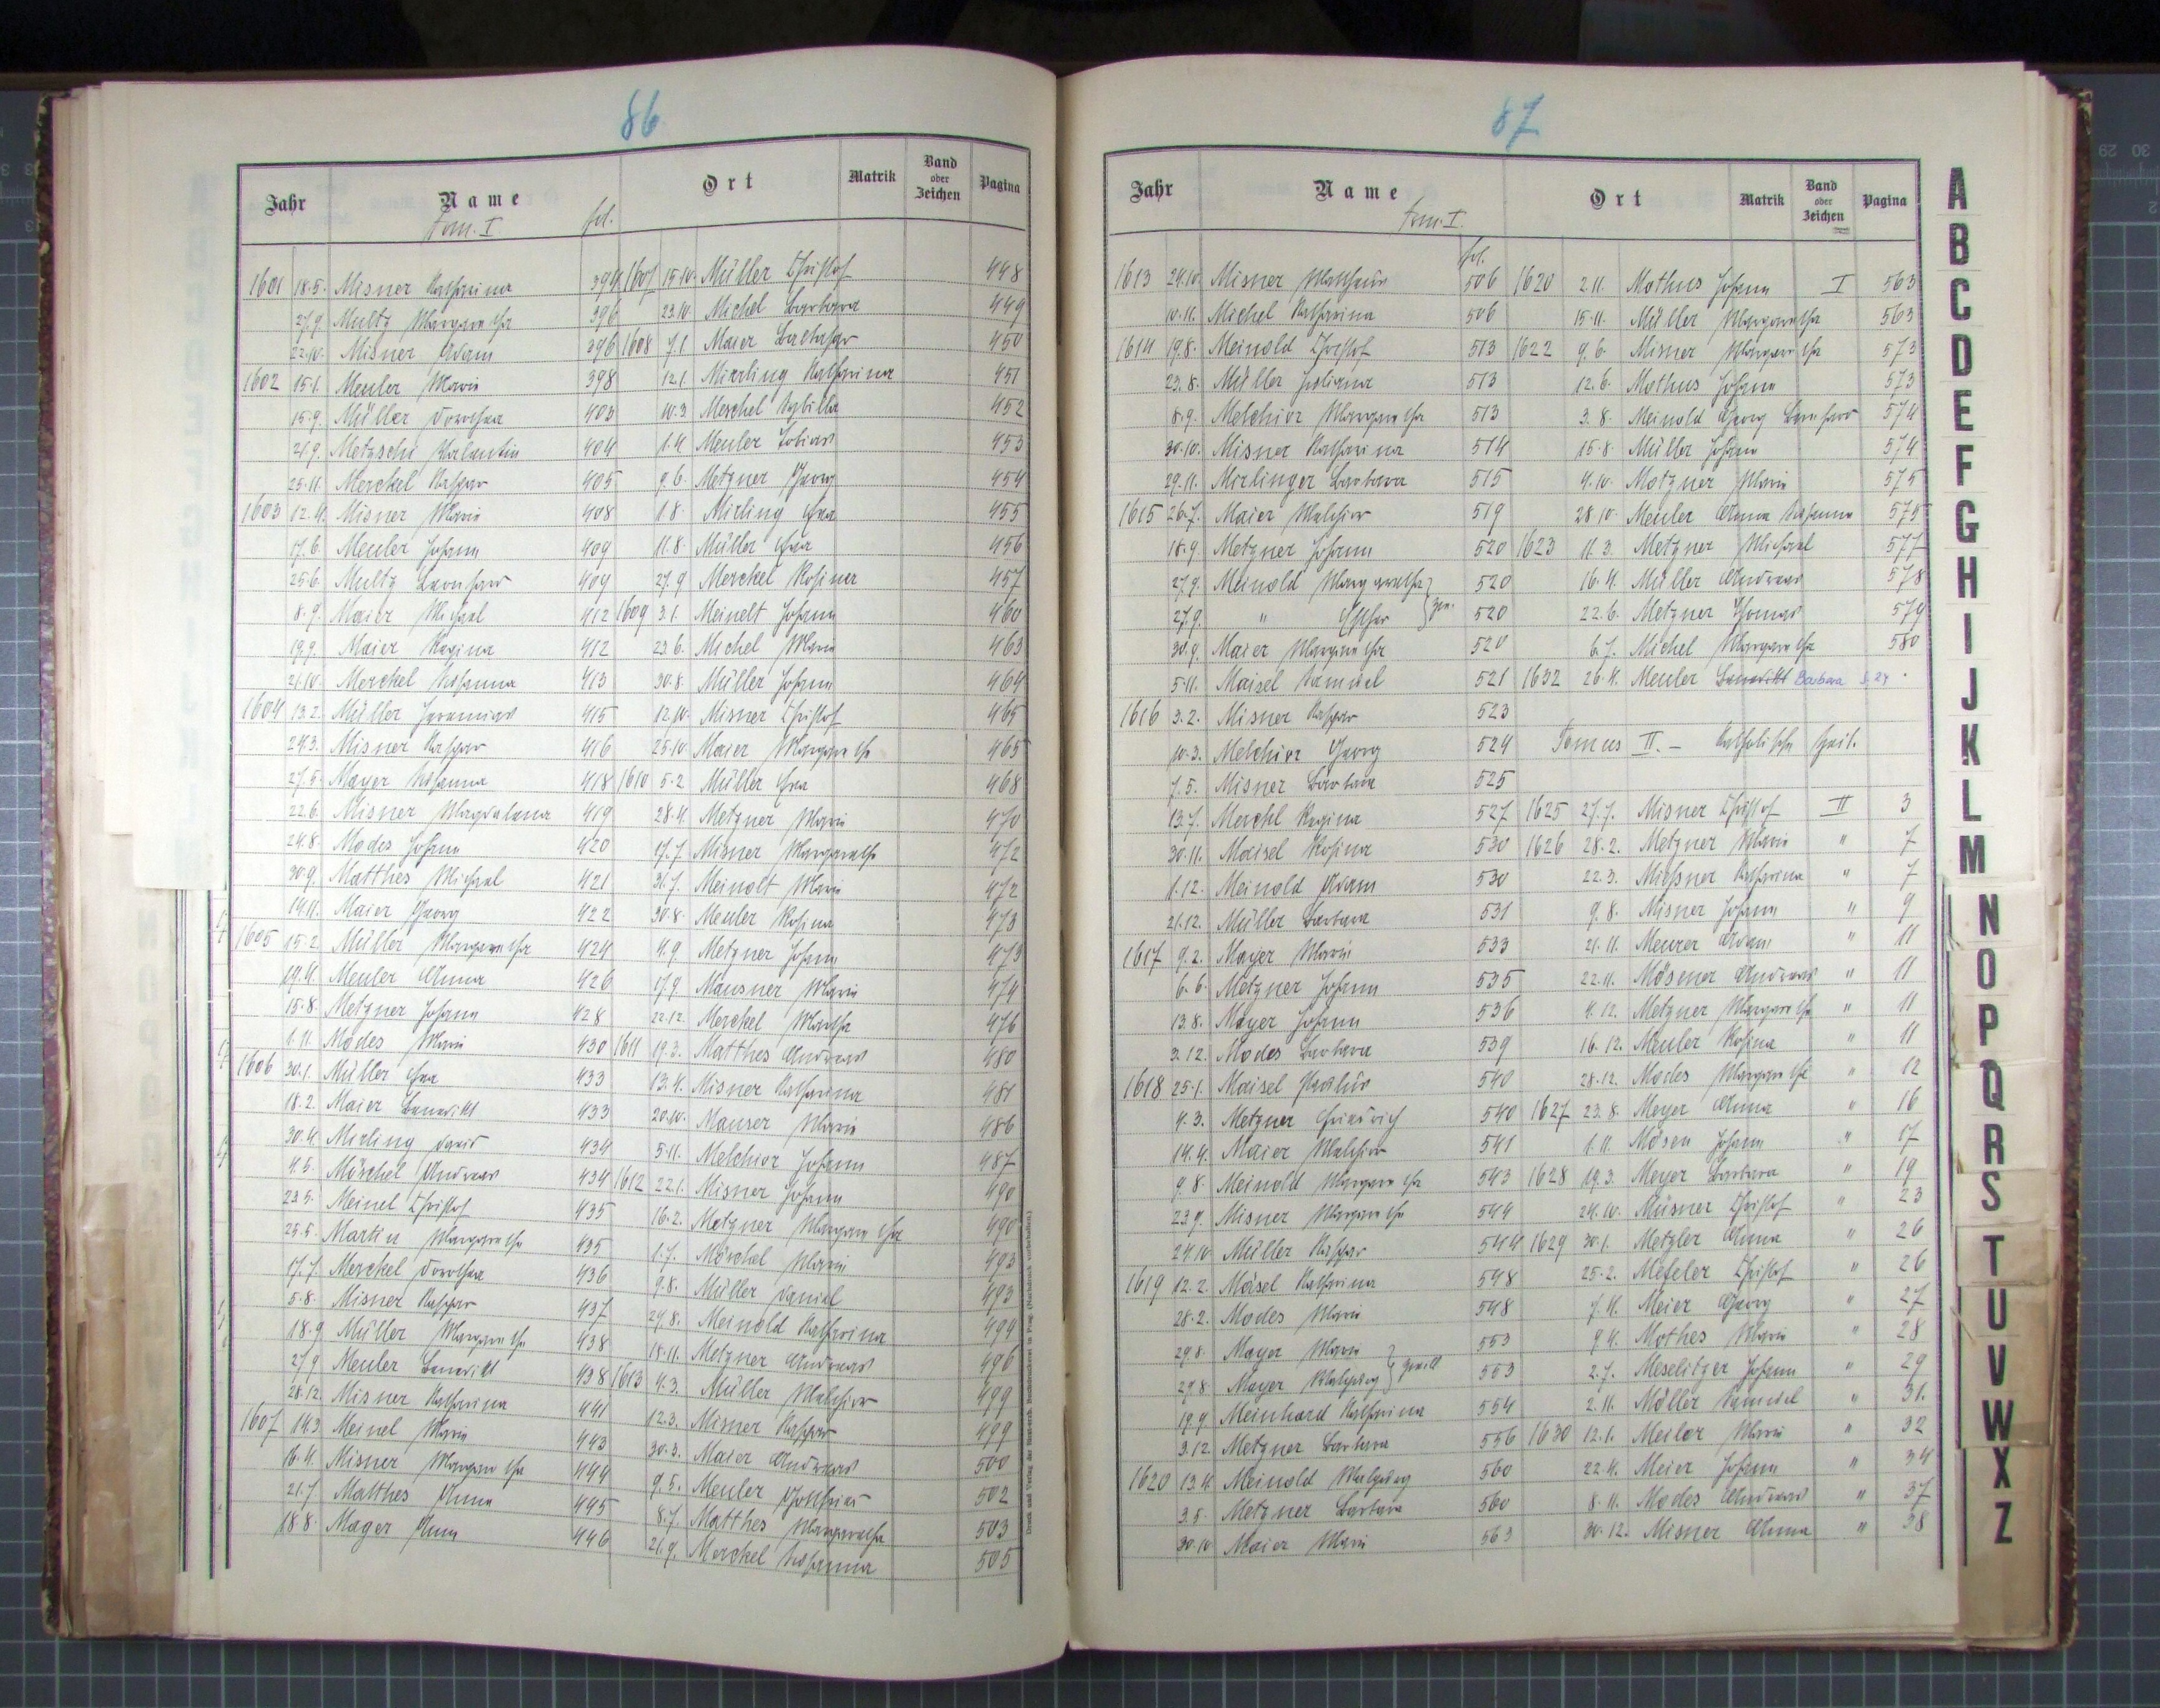 86
Jahr Name Ort Matrik Band oder Zeichen Pagina
tom. I fol.
1601 18.5. Misner Katharina 394
27.9. Multz Margaretha 396
22.10. Misner Adam 396
1602 15.1. Meuler Marie 398
15.9. Müller Dorothea 403
21.9. Metzschi Valentin 404
25.11. Merckel Kaspar 405
1603 12.4. Misner Marie 408
17.6. Meuler Johann 409
25.6. Multz Leonhard 409
8.9. Maier Michael 412
19.9. Maier Regina 412
21.10. Merckel Susanna 413
1604 13.2. Müller Jeremias 415
24.3. Misner Kaspar 416
27.5. Mayer Susanna 418
22.6. Misner Magdalena 419
24.8. Modes Johann 420
30.9. Matthes Michael 421
14.11. Maier Georg 422
1605 15.2. Müller Margaretha 424
19.4. Meuler Anna 426
15.8. Metzner Johann 428
1.11. Modes Marie 430
1606 30.1. Müller Eva 433
18.2. Maier Benedikt 433
30.4. Mirling David 434
4.5. Mörckel Andreas 434
23.5. Meinel Christof 435
25.5. Martin Margaretha 435
17.7. Merckel Dorothea 436
5.8. Misner Kaspar 437
18.9 Müller Margaretha 438
27.9 Meuler Benedikt 438
28.12 Misner Katharina 441
1607 14.3 Meinel Marie 443
16.4. Misner Margaretha 444
21.7 Matthes Anna 445
18.8. Mayer Anna 446
1607 15.10. Müller Christof 448
23.10. Michel Barbara 449
1608 7.1 Maier Balthasar 450
12.1. Mierling Katharina 451
10.3 Merchel Sybilla 452
1.4 Meuler Tobias 453
9.6. Metzner Georg 454
1.8. Mirling Eva 455
11.8. Müller Eva 456
27.9 Merckel Rosina 457
1609 3.1. Meinelt Johann 460
23.6. Michel Marie 463
30.8. Müller Johann 464
12.10. Misner Christof 465
25.10 Maier Margaretha 465
1610 5.2 Müller Eva 468
28.4. Metzner Marie 470
17.7 Misner Margaretha 472
31.7. Meinolt Marie 472
30.8. Meuler Rosina 473
4.9. Metzner Johann 473
17.9 Mausner Marie 474
22.12. Merckel Martha 476
1611 19.3. Matthes Andreas 480
13.4. Misner Katharina 481
20.10. Mauser Marie 486
5.11. Melchior Johann 487
1612 22.1. Misner Johann 490
16.2. Metzner Margaretha 490
1.7. Mörckel Marie 493
9.8. Müller Daniel 493
24.8. Meinold Katharina 494
18.11. Metzner Andreas 496
1613 4.3. Müller Melchior 499
12.3. Misner Kaspar 499
30.3. Maier Andreas 500
9.5. Meuler Gottfried 502
8.7. Matthes Margaretha 503
21.9. Merckel Susanna 505
87
Jahr Name Ort Matrik Band oder Zeichen Pagina
tom. I. fol.
1613 24.10 Misner Matthäus 506
10.11. Michel Katharina 506
1614 19.8. Meinold Christof 513
23.8. Müller Juliana 513
8.9. Melchior Margaretha 513
30.10. Misner Katharina 514
29.11. Mirlinger Barbara 515
1615 26.7. Maier Melchior 519
18.9. Metzner Johann 520
27.9. Meinold Margaretha 520
27.9. " Esther 520
30.9. Maier Margaretha 520
5.11. Maisel Samuel 521
1616 3.2. Misner Kaspar 523
10.3. Melchior Georg 524
7.5. Misner Barbara 525
13.7. Merchl Regina 527
30.11. Maisel Rosina 530
1.12. Meinold Adam 530
21.12. Müller Barbara 531
1617 9.2. Mayer Marie 533
6.6. Metzner Johann 535
13.8. Mayer Johann 536
3.12. Modes Barbara 539
1618 25.1. Maisel Paulus 540
4.3. Metzner Friedrich 540
14.4. Maier Melchior 541
9.8. Meinold Margaretha 543
23.9. Misner Margaretha 544
24.10 Müller Kaspar 544
1619 12.2. Mäsel Katharina 548
28.2. Modes Marie 548
29.8. Mayer Marie 553
29.8. Mayer Walpurg 553
19.9 Meinhard Katharina 554
3.12. Metzner Barbara 556
1620 13.4. Meinold Walpurg 560
3.5. Metzner Barbara 560
30.10 Maier Marie 563
1620 2.11. Mothus Johann I 563
15.11. Müller Margaretha 563
1622 9.6. Misner Margaretha 573
12.6. Mothus Johann 573
3.8. Meinold Georg Leonhard 574
15.8. Müller Johann 574
4.10. Motzner Marie 575
28.10. Meuler Anna Susanna 575
1623 11.3. Metzner Michael 577
16.4. Müller Andreas 578
22.6. Metzner Thomas 579
6.7. Michel Margaretha 580
1632 26.4. Meuler Benedikt Barbara S. 27
Tomus II. — Katholische Zeit.
1625 27.7. Misner Christof II 3
1626 28.2. Metzner Marie " 7
22.3. Miessner Katharina " 7
9.8. Misner Johann " 9
21.11. Meurer Adam " 11
22.11. Mösener Andreas " 11
4.12. Metzner Margaretha " 11
16.12. Meuler Rosina " 11
28.12. Modes Margaretha " 12
1627 23.8. Meyer Anna " 16
1.11. Mösen Johann " 17
1628 19.3. Meyer Barbara " 19
24.10. Müsner Christof " 23
1629 30.1. Metzler Anna " 26
25.2. Mefeler Christof " 26
7.4. Meier Georg " 27
9.4. Mothes Marie " 28
2.7. Meselitzer Johann " 29
2.11. Möller Samuel " 31.
1630 12.1. Meiler Marie " 32
22.4. Meier Johann " 34
8.11. Modes Andreas " 37
30.12. Misner Anna " 38
A
B
C
D
E
F
G
H
I
J
K
L
M
N
O
P
Q
R
S
T
U
V
W
X
Z